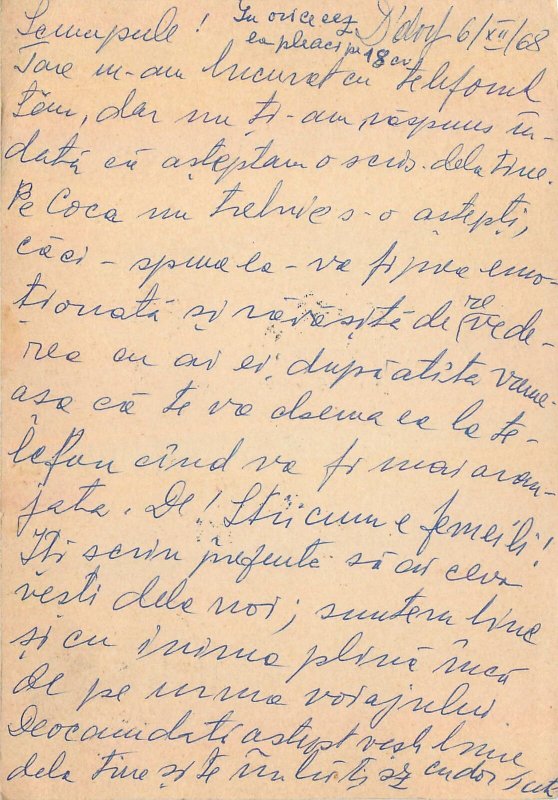 Scumpule! D'dorf 6/XII/68
În orice caz
ea pleacă pe 18 cr.
Tare m-am bucurat cu telefonul
tău, dar nu ți-am răspuns în-
dată că așteptam o scris. dela tine.
Pe Coca nu trebuie s-o aștepți,
căci - spunea ea - va fi prea emo-
ționată și răvășită de revede-
rea cu ai ei, după atîta vreme
așa că te va chema ea la te-
lefon cînd va fi mai aran-
jată. De! Știi cum e femeili!
Iți scriu prezenta să ai ceva
vești dela noi; suntem bine
și cu inima plină încă
de pe urma voiajului
Deocamdată aștept vești bune
dela tine și te îmbrățișez cu dor